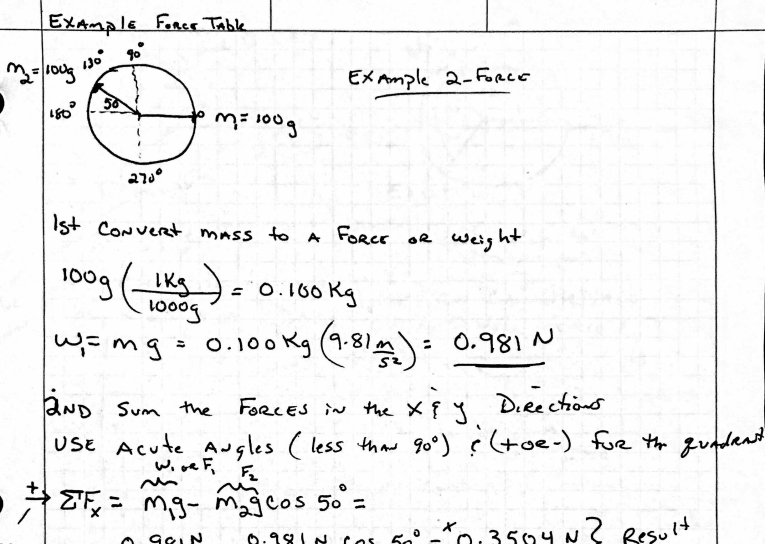 Example Force Table
m₂ = 100g 130° 90°
Example 2-Force
180° 50 0 m₁ = 100g
270°
1st Convert mass to A Force or weight
100g (1Kg/1000g) = 0.100 Kg
W₁ = m g = 0.100 Kg (9.81 m/s²) = 0.981 N
2ND Sum the Forces in the X & y Directions
USE Acute Angles (less than 90°) & (+ or -) for the quadrant
W₁ or F₁ F₂
+→ ΣFₓ = m₁g - m₂g cos 50° =
0.981N 0.981N cos 50° = 0.3504 N } Result